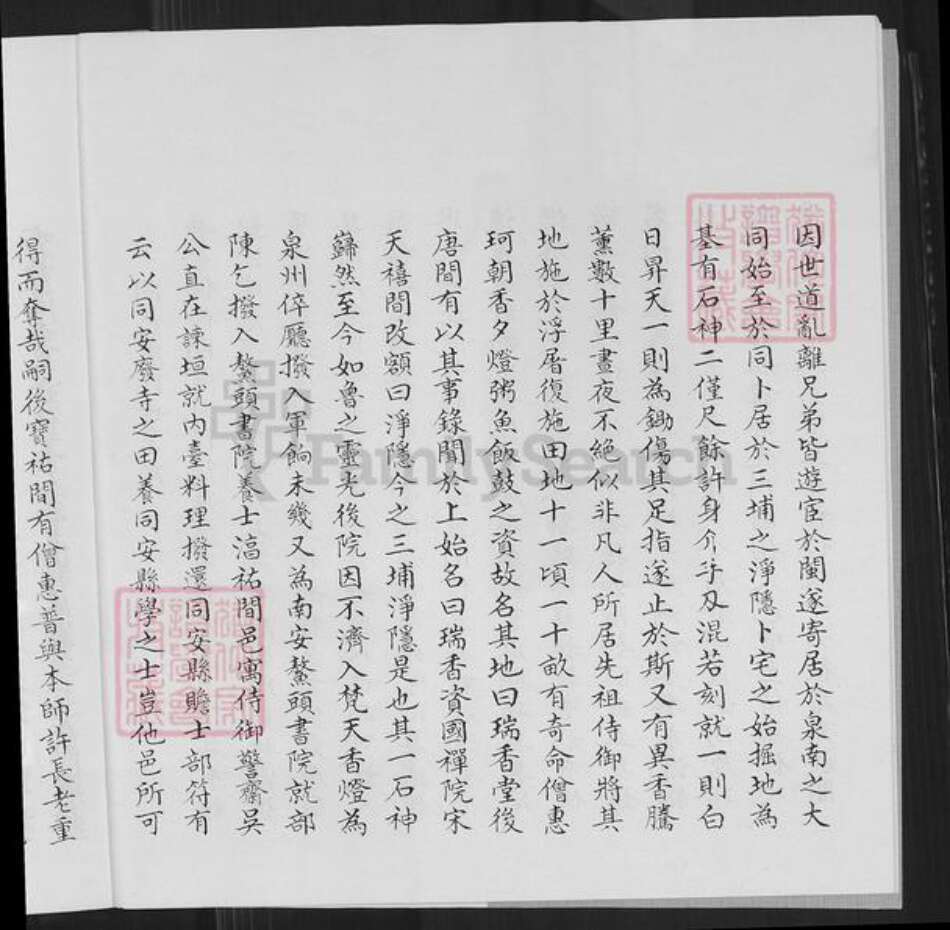 因世道亂離兄弟皆遊宦於閩遂寄居於泉南之大
同始至於同卜居於三埔之淨隱卜宅之始掘地為
基有石神二僅尺餘許身介乎及混若刻就一則白
日昇天一則為鋤傷其足指遂止於斯又有異香騰
薰數十里晝夜不絕似非凡人所居先祖侍御將其
地施於浮屠復施田地十一頃一十畝有奇命僧惠
珂朝香夕燈粥魚飯鼓之資故名其地曰瑞香堂後
唐間有以其事錄聞於上始名曰瑞香資國禪院宋
天禧間改額曰淨隱今之三埔淨隱是也其一石神
巋然至今如魯之靈光後院因不濟入梵天香燈為
泉州倅廳撥入軍餉未幾又為南安鰲頭書院就部
陳乞撥入鰲頭書院養士滈祐間邑寓侍御警齋吳
公直在諫垣就內臺料理撥還同安縣贍士部符有
云以同安廢寺之田養同安縣學之士豈他邑所可
得而奪哉嗣後寶祐間有僧惠普與本師許長老重
FamilySearch